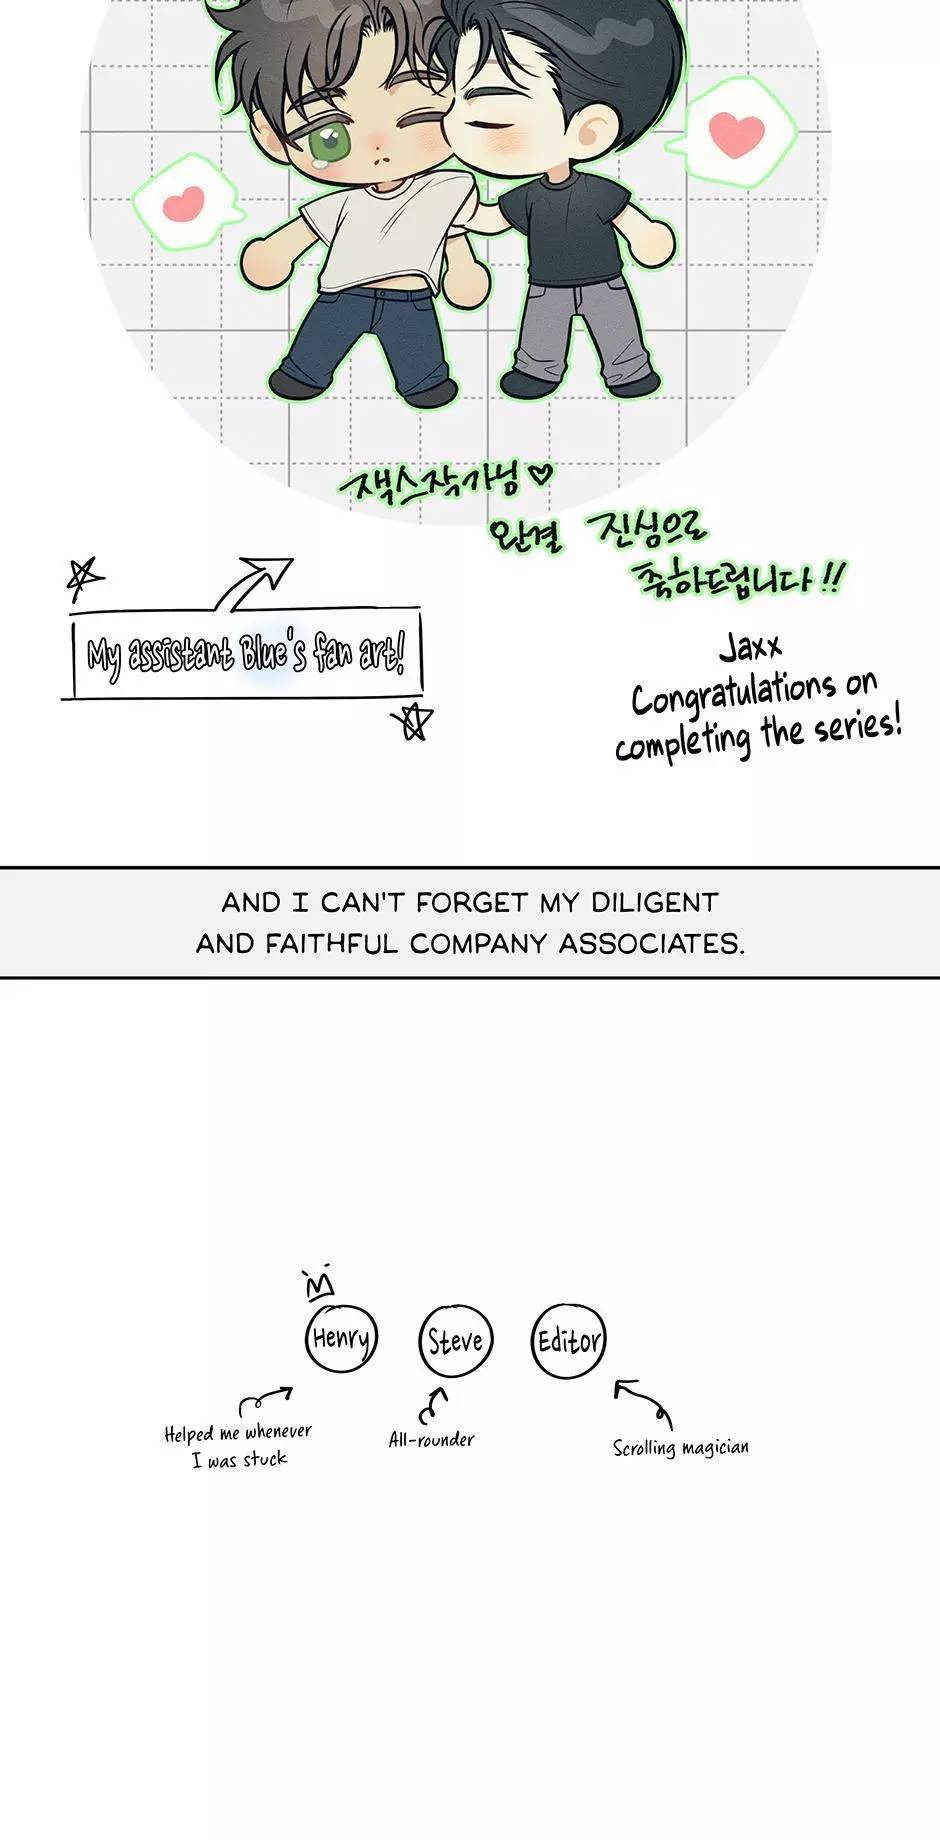 잭스작가님♡
완결 진심으로
축하드립니다!!
My assistant Blue's fan art!
Jaxx
Congratulations on
completing the series!
AND I CAN'T FORGET MY DILIGENT
AND FAITHFUL COMPANY ASSOCIATES.
Henry
Steve
Editor
Helped me whenever
I was stuck
All-rounder
Scrolling magician